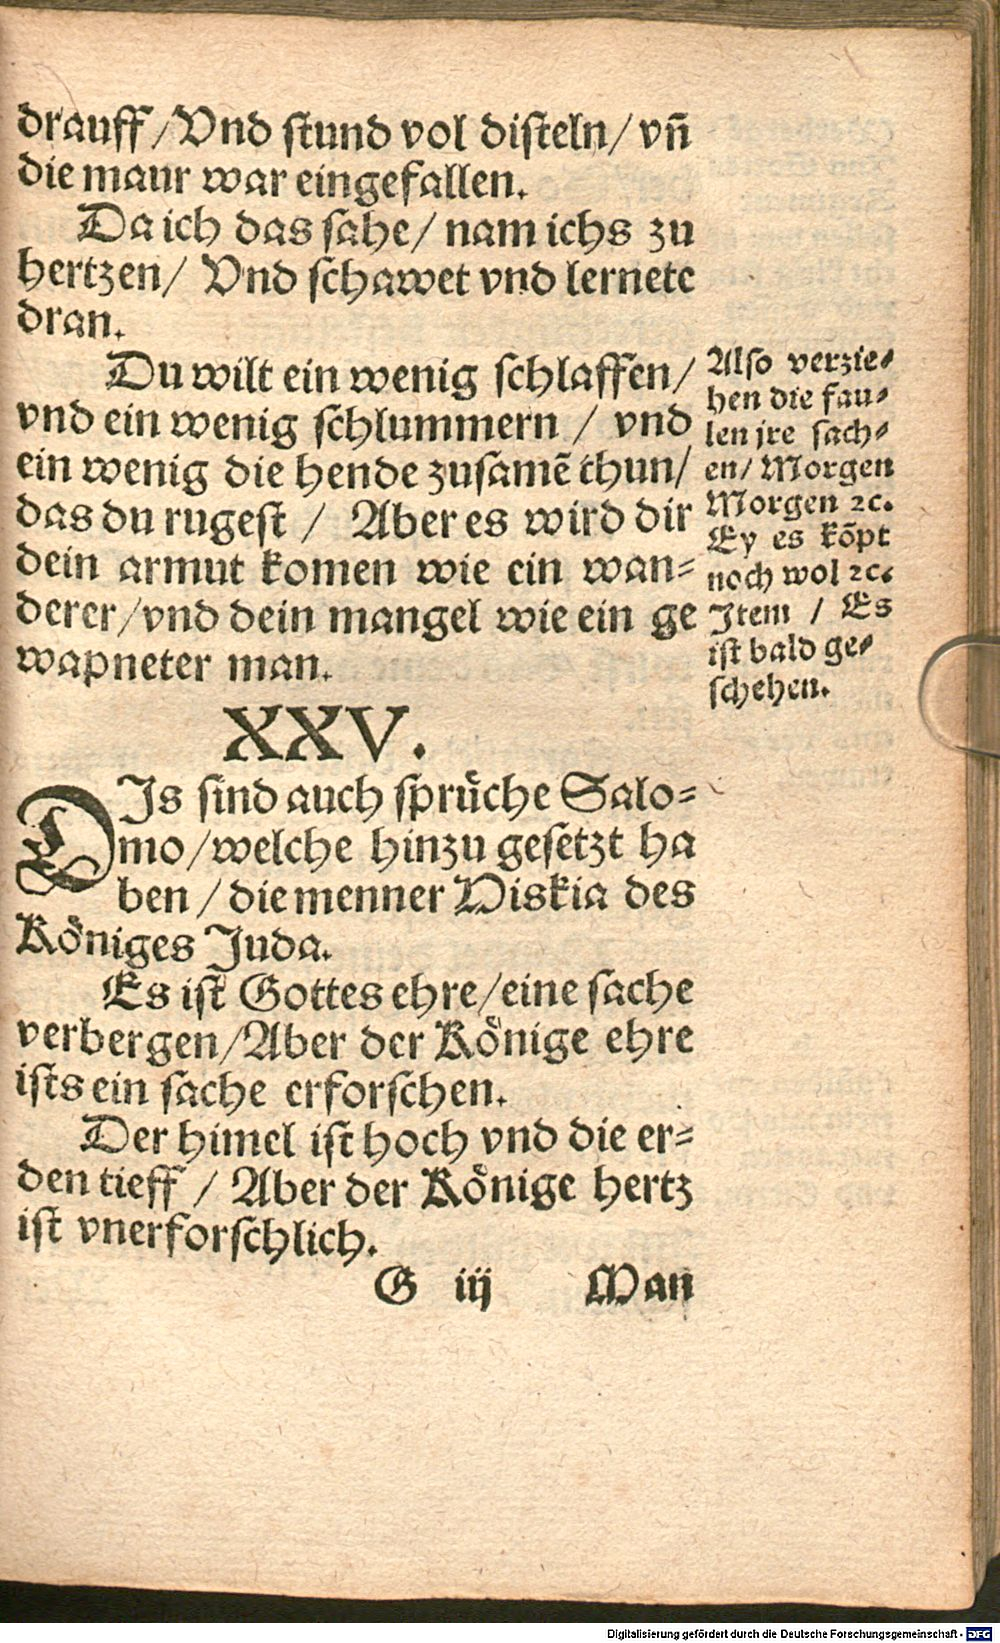 drauff / Vnd stund vol disteln / vñ
die maur war eingefallen.
Da ich das sahe / nam ichs zu
hertzen / Vnd schawet vnd lernete
dran.
Du wilt ein wenig schlaffen /
vnd ein wenig schlummern / vnd
ein wenig die hende zusamē thun /
das du rugest / Aber es wird dir
dein armut komen wie ein wan=
derer / vnd dein mangel wie ein ge
wapneter man.
Also verzie=
hen die fau=
len jre sach=
en / Morgen
Morgen ꝛc.
Ey es kõpt
noch wol ꝛc.
Item / Es
ist bald ge=
schehen.
XXV.
DIs sind auch sprüche Salo=
mo / welche hinzu gesetzt ha
ben / die menner Hiskia des
Königes Juda.
Es ist Gottes ehre / eine sache
verbergen / Aber der Könige ehre
ists ein sache erforschen.
Der himel ist hoch vnd die er=
den tieff / Aber der Könige hertz
ist vnerforschlich.
G iij Man
Digitalisierung gefördert durch die Deutsche Forschungsgemeinschaft - DFG